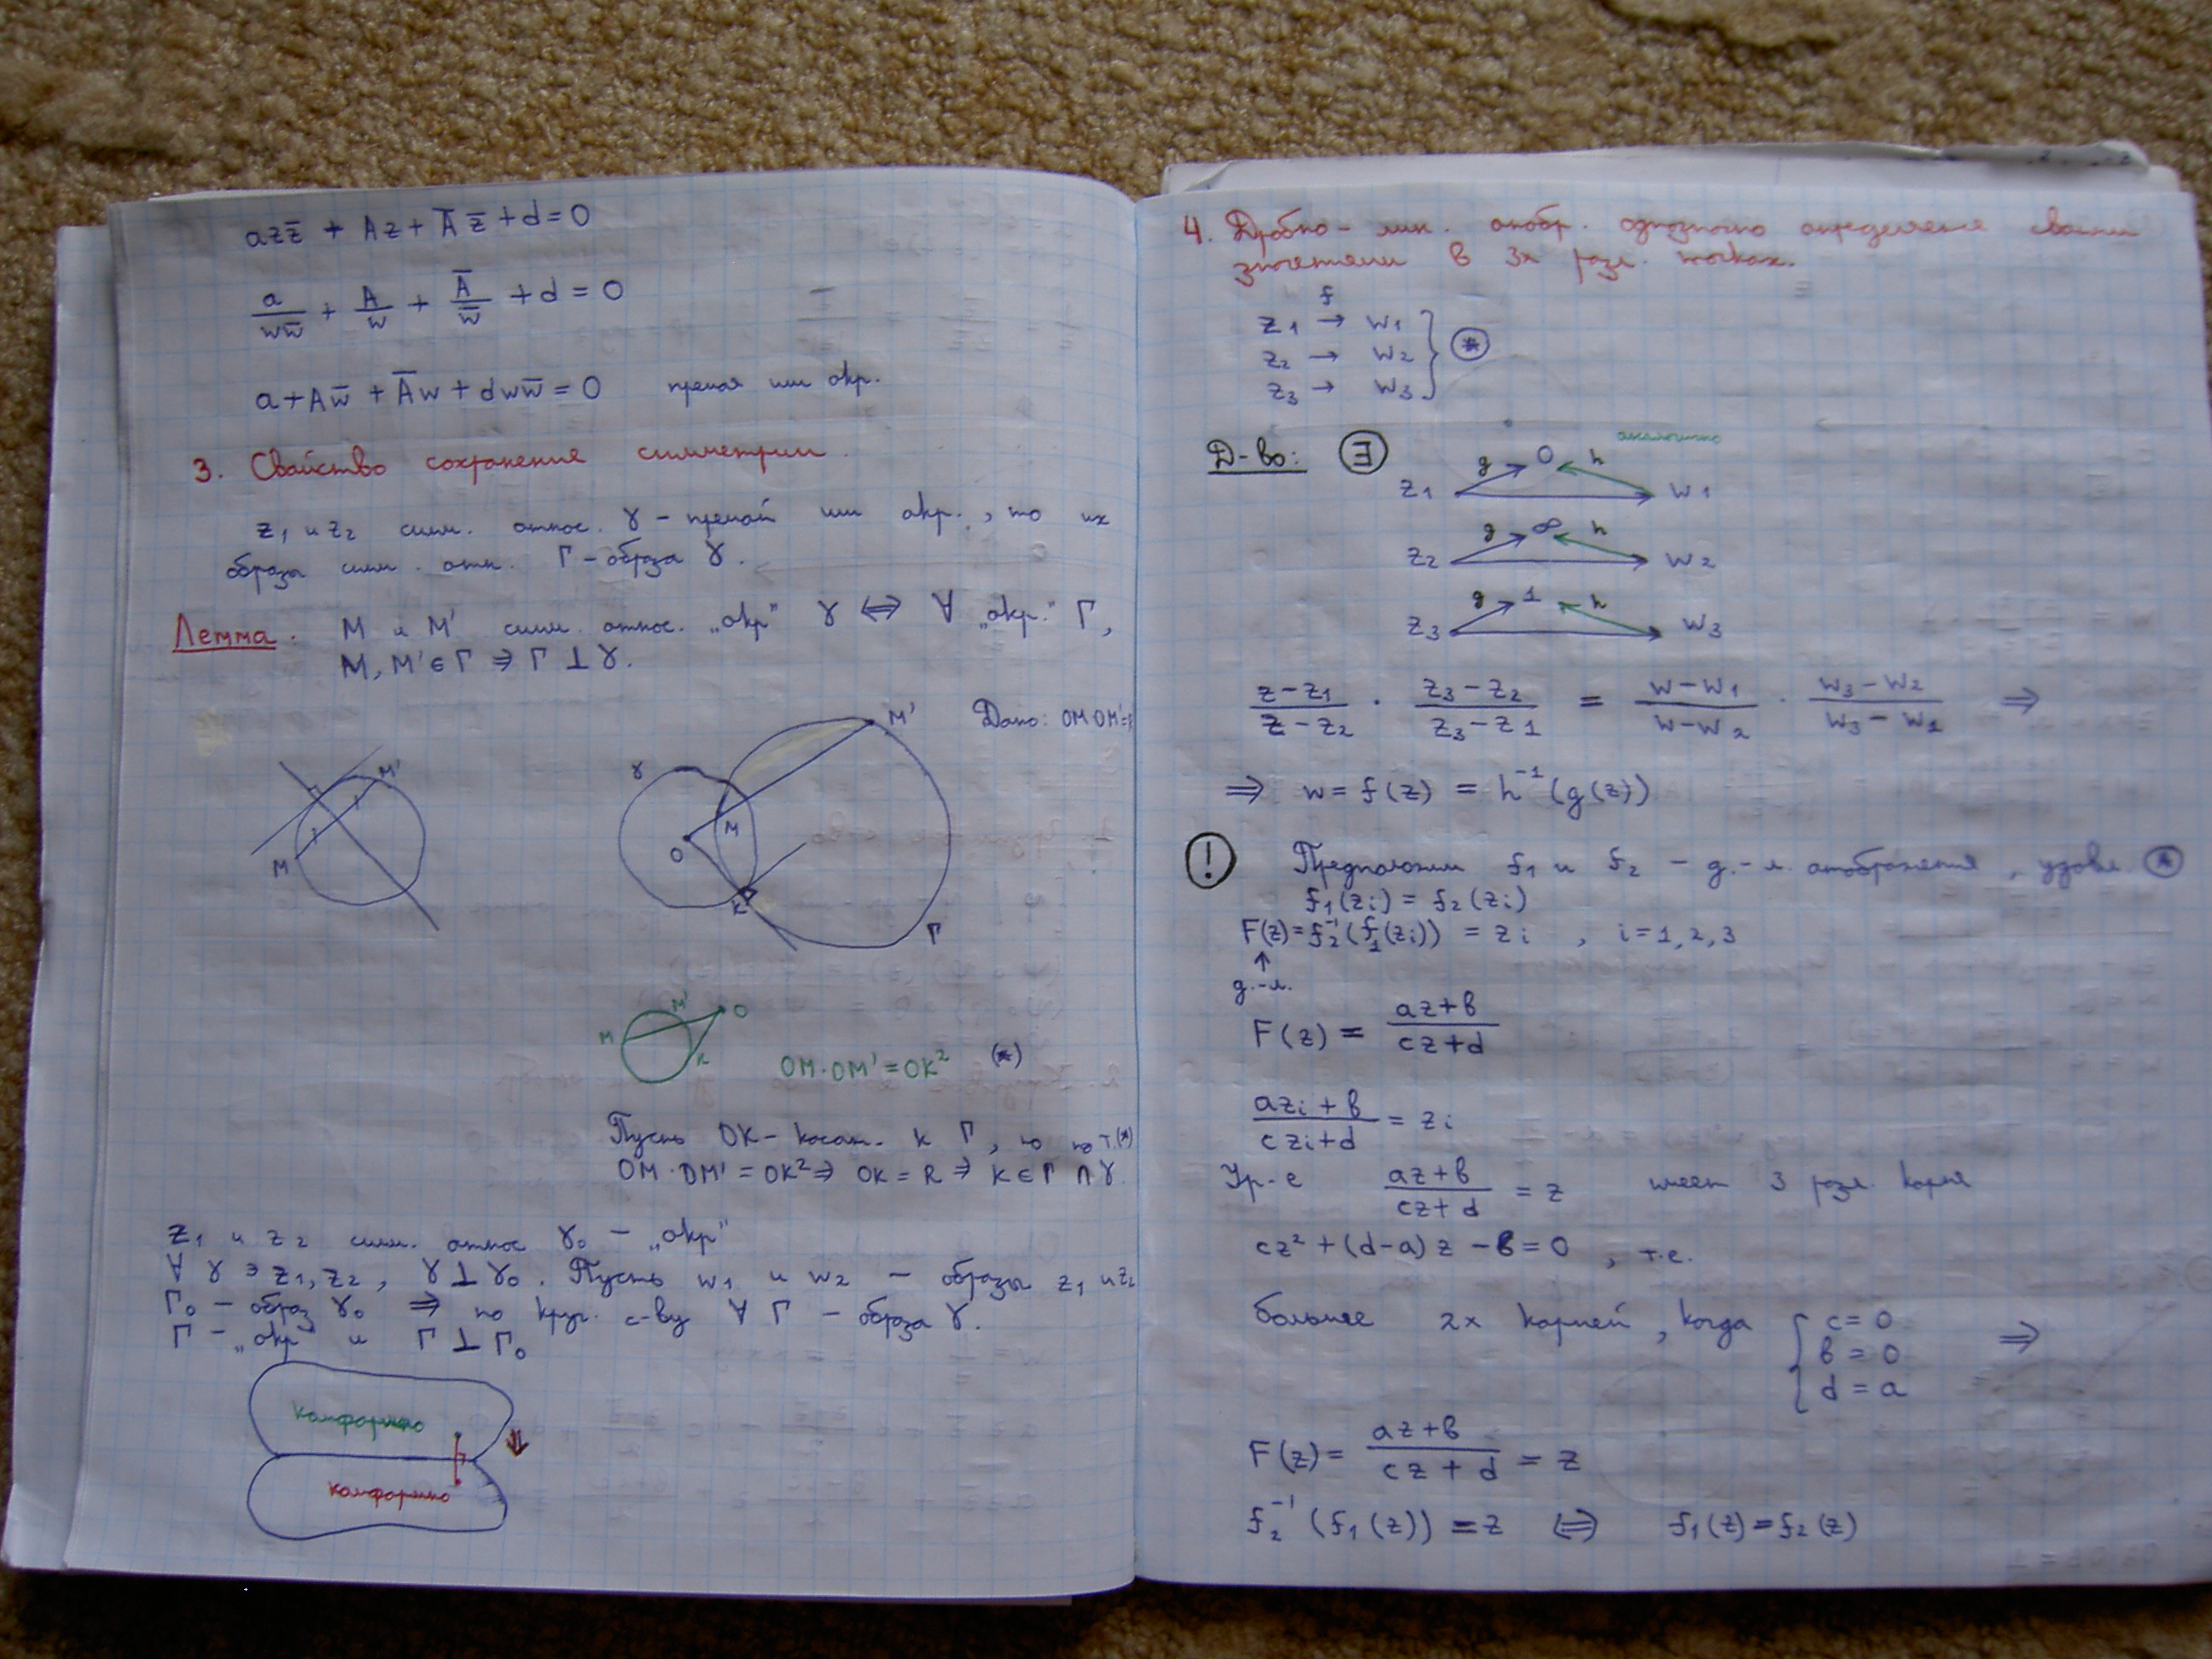 azz̄ + Az + Āz̄ + d = 0
a/(ww̄) + A/w + Ā/w̄ + d = 0
a + Aw̄ + Āw + dww̄ = 0 прямая или окр.
3. Свойство сохранения симметрии.
z₁ и z₂ симм. относ. γ – прямой или окр., то их
образы симм. отн. Γ – образа γ.
Лемма. M и M' симм. относ. „окр" γ ⟺ ∀ „окр." Γ,
M, M' ∈ Γ ⇒ Γ ⊥ γ.
M'
M
γ
M'
O
M
K
Γ
Дано: OM·OM'=
M
M'
O
K
OM·OM' = OK² (*)
Пусть OK – касат. к Γ, то по т.(*)
OM·OM' = OK² ⇒ OK = R ⇒ K ∈ Γ ∩ γ.
z₁ и z₂ симм. относ γ₀ – „окр"
∀ γ ∋ z₁, z₂, γ ⊥ γ₀. Пусть w₁ и w₂ – образы z₁ и z₂
Γ₀ – образ γ₀ ⇒ по круг. с-ву ∀ Γ – образа γ.
Γ – „окр" и Γ ⊥ Γ₀
Конформно
⇓
Конформно
4. Дробно-лин. отобр. однозначно определено своими
значениями в 3х разл. точках.
f
z₁ → w₁
z₂ → w₂ } (*)
z₃ → w₃
Д-во: ∃
аналогично
z₁ g 0 h w₁
z₂ g ∞ h w₂
z₃ g 1 h w₃
(z-z₁)/(z-z₂) · (z₃-z₂)/(z₃-z₁) = (w-w₁)/(w-w₂) · (w₃-w₂)/(w₃-w₁) ⇒
⇒ w = f(z) = h⁻¹(g(z))
! Предположим f₁ и f₂ – д.-л. отображения, удовл. (*)
f₁(zᵢ) = f₂(zᵢ)
F(z) = f₂⁻¹(f₁(zᵢ)) = zᵢ , i = 1, 2, 3
↑
д.-л.
F(z) = (az+b)/(cz+d)
(azᵢ+b)/(czᵢ+d) = zᵢ
Ур-е (az+b)/(cz+d) = z имеет 3 разл. корня
cz² + (d-a)z - b = 0 , т.е.
больше 2х корней, когда { c = 0
b = 0 ⇒
d = a
F(z) = (az+b)/(cz+d) = z
f₂⁻¹(f₁(z)) = z ⟺ f₁(z) = f₂(z)